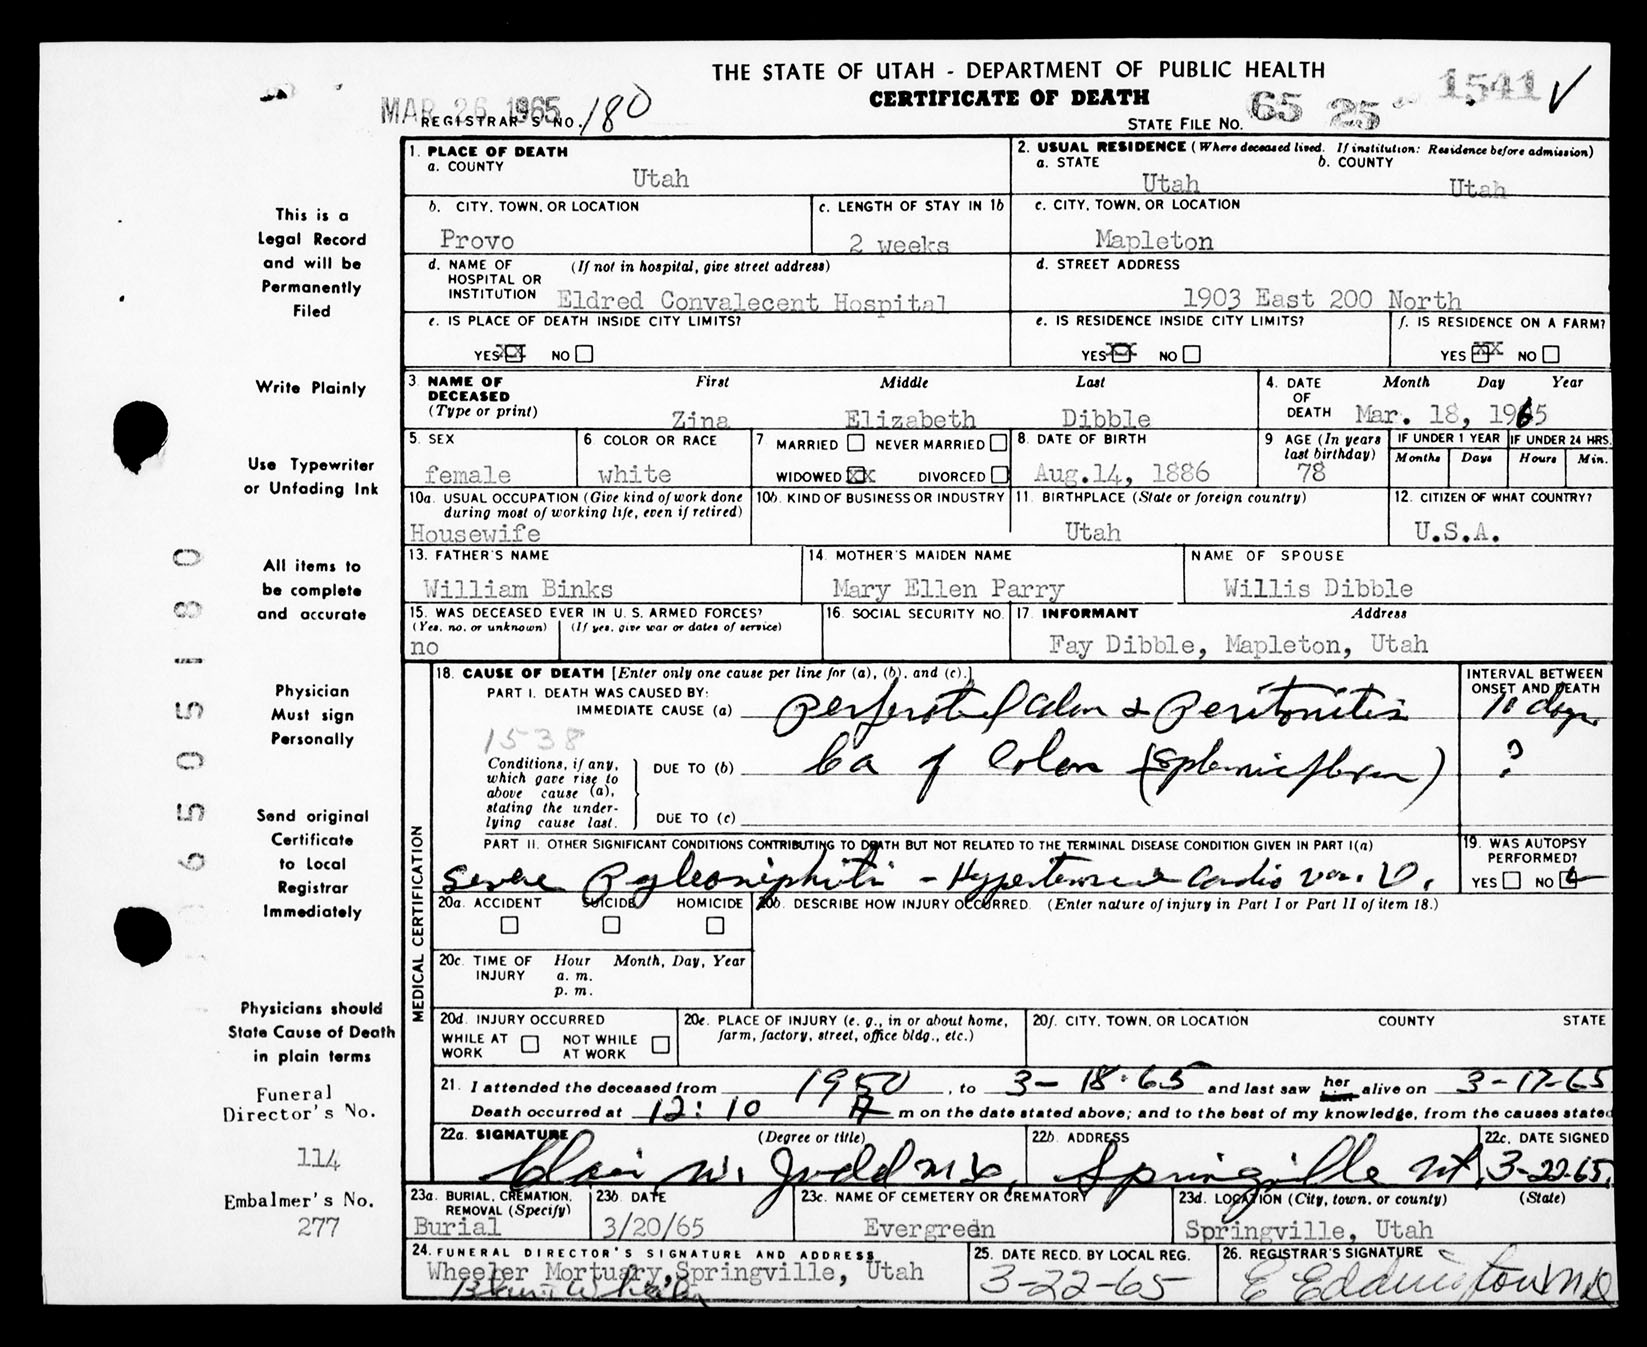 THE STATE OF UTAH - DEPARTMENT OF PUBLIC HEALTH
CERTIFICATE OF DEATH
1541 ✓
MAR 26 1965
REGISTRAR'S NO. 180
STATE FILE NO. 65 25
1. PLACE OF DEATH
a. COUNTY
Utah
2. USUAL RESIDENCE (Where deceased lived. If institution: Residence before admission)
a. STATE
Utah
b. COUNTY
Utah
b. CITY, TOWN, OR LOCATION
Provo
c. LENGTH OF STAY IN 1b
2 weeks
c. CITY, TOWN, OR LOCATION
Mapleton
d. NAME OF HOSPITAL OR INSTITUTION
(If not in hospital, give street address)
Eldred Convalecent Hospital
d. STREET ADDRESS
1903 East 200 North
e. IS PLACE OF DEATH INSIDE CITY LIMITS?
YES XX NO
e. IS RESIDENCE INSIDE CITY LIMITS?
YES XX NO
f. IS RESIDENCE ON A FARM?
YES XX NO
3. NAME OF DECEASED (Type or print)
First Middle Last
Zina Elizabeth Dibble
4. DATE OF DEATH
Month Day Year
Mar. 18, 1965
5. SEX
female
6 COLOR OR RACE
white
7 MARRIED NEVER MARRIED
WIDOWED XX DIVORCED
8. DATE OF BIRTH
Aug.14, 1886
9 AGE (In years last birthday)
78
IF UNDER 1 YEAR
Months Days
IF UNDER 24 HRS.
Hours Min.
10a. USUAL OCCUPATION (Give kind of work done during most of working life, even if retired)
Housewife
10b. KIND OF BUSINESS OR INDUSTRY
11. BIRTHPLACE (State or foreign country)
Utah
12. CITIZEN OF WHAT COUNTRY?
U.S.A.
13. FATHER'S NAME
William Binks
14. MOTHER'S MAIDEN NAME
Mary Ellen Parry
NAME OF SPOUSE
Willis Dibble
15. WAS DECEASED EVER IN U. S. ARMED FORCES?
(Yes, no, or unknown) (If yes, give war or dates of service)
no
16. SOCIAL SECURITY NO.
17. INFORMANT Address
Fay Dibble, Mapleton, Utah
MEDICAL CERTIFICATION
18. CAUSE OF DEATH [Enter only one cause per line for (a), (b), and (c).]
INTERVAL BETWEEN ONSET AND DEATH
PART I. DEATH WAS CAUSED BY:
IMMEDIATE CAUSE (a) perforated Colon & Peritonitis
10 days
1538
Conditions, if any, which gave rise to above cause (a), stating the underlying cause last.
DUE TO (b) Ca of Colon (Splenic flexure)
?
DUE TO (c)
PART II. OTHER SIGNIFICANT CONDITIONS CONTRIBUTING TO DEATH BUT NOT RELATED TO THE TERMINAL DISEASE CONDITION GIVEN IN PART I(a)
Severe Pyleonephritis - Hypertensive Cardio vas. D.
19. WAS AUTOPSY PERFORMED?
YES NO ✓
20a. ACCIDENT SUICIDE HOMICIDE
20b. DESCRIBE HOW INJURY OCCURRED. (Enter nature of injury in Part I or Part II of item 18.)
20c. TIME OF INJURY
Hour Month, Day, Year
a. m.
p. m.
20d. INJURY OCCURRED
WHILE AT WORK NOT WHILE AT WORK
20e. PLACE OF INJURY (e. g., in or about home, farm, factory, street, office bldg., etc.)
20f. CITY, TOWN, OR LOCATION COUNTY STATE
21. I attended the deceased from 1950, to 3-18-65 and last saw her him alive on 3-17-65
Death occurred at 12:10 A m on the date stated above; and to the best of my knowledge, from the causes stated
22a. SIGNATURE (Degree or title)
Clair W. Judd M.D.
22b. ADDRESS
Springville Ut.
22c. DATE SIGNED
3-22-65.
23a. BURIAL, CREMATION, REMOVAL (Specify)
Burial
23b. DATE
3/20/65
23c. NAME OF CEMETERY OR CREMATORY
Evergreen
23d. LOCATION (City, town, or county) (State)
Springville, Utah
24. FUNERAL DIRECTOR'S SIGNATURE AND ADDRESS
Wheeler Mortuary, Springville, Utah
25. DATE RECD. BY LOCAL REG.
3-22-65
26. REGISTRAR'S SIGNATURE
This is a
Legal Record
and will be
Permanently
Filed
Write Plainly
Use Typewriter
or Unfading Ink
All items to
be complete
and accurate
Physician
Must sign
Personally
Send original
Certificate
to Local
Registrar
Immediately
Physicians should
State Cause of Death
in plain terms
Funeral
Director's No.
114
Embalmer's No.
277
65905180